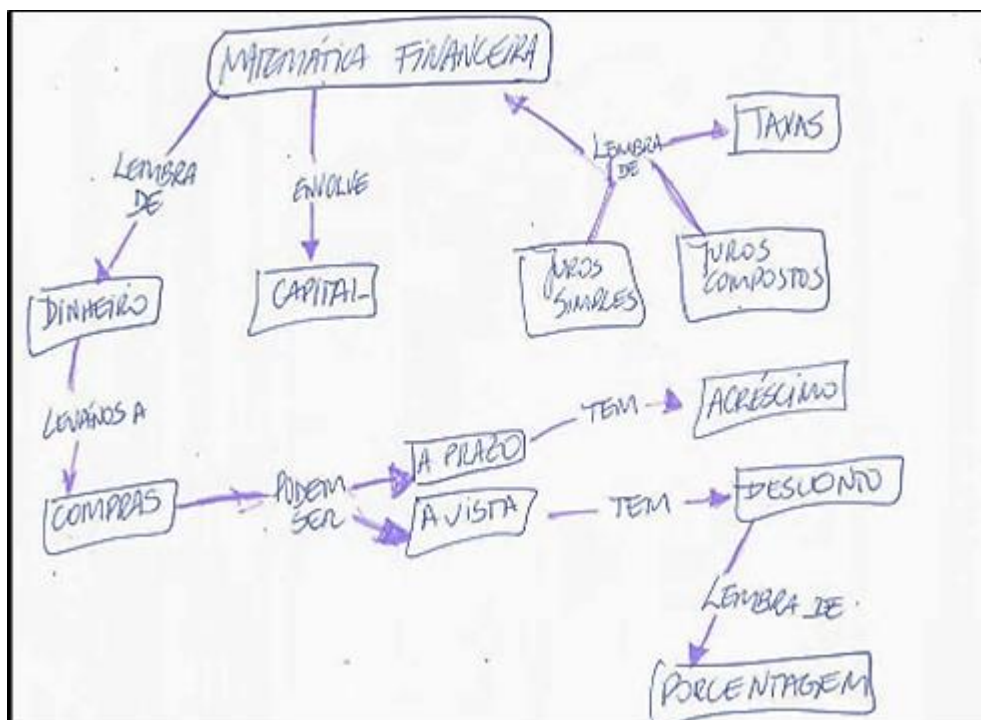 MATEMÁTICA FINANCEIRA
LEMBRA
DE
ENVOLVE
LEMBRA
DE
TAXAS
DINHEIRO
CAPITAL
JUROS
SIMPLES
JUROS
COMPOSTOS
LEVANOS A
COMPRAS
PODEM
SER
A PRAZO
TEM
ACRÉSCIMO
A VISTA
TEM
DESCONTO
LEMBRA DE
PORCENTAGEM